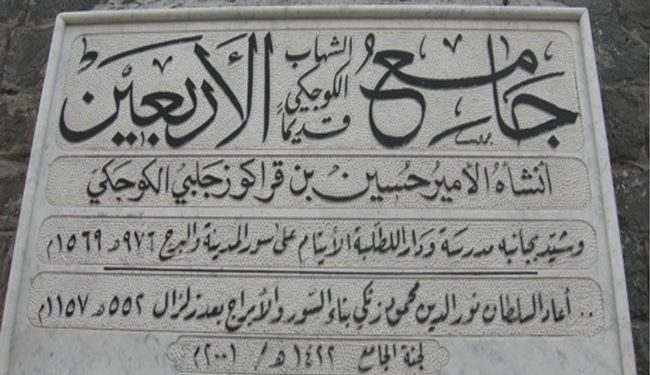 جامع
الشهاب
الكوجكي
قديماً
الأربعين
أنشأه الأمير حسين بن قراكوز جلبي الكوجكي
وشيّد بجانبه مدرسة ودارا للطلبة الأيتام على سور المدينة والبرج ٩٧٦هـ ١٥٦٩م
.. أعاد السلطان نور الدين محمود زنكي بناء السور والأبراج بعد زلزال ٥٥٢هـ ١١٥٧م
لجنة الجامع ١٤٢٢هـ / (٢٠٠١)